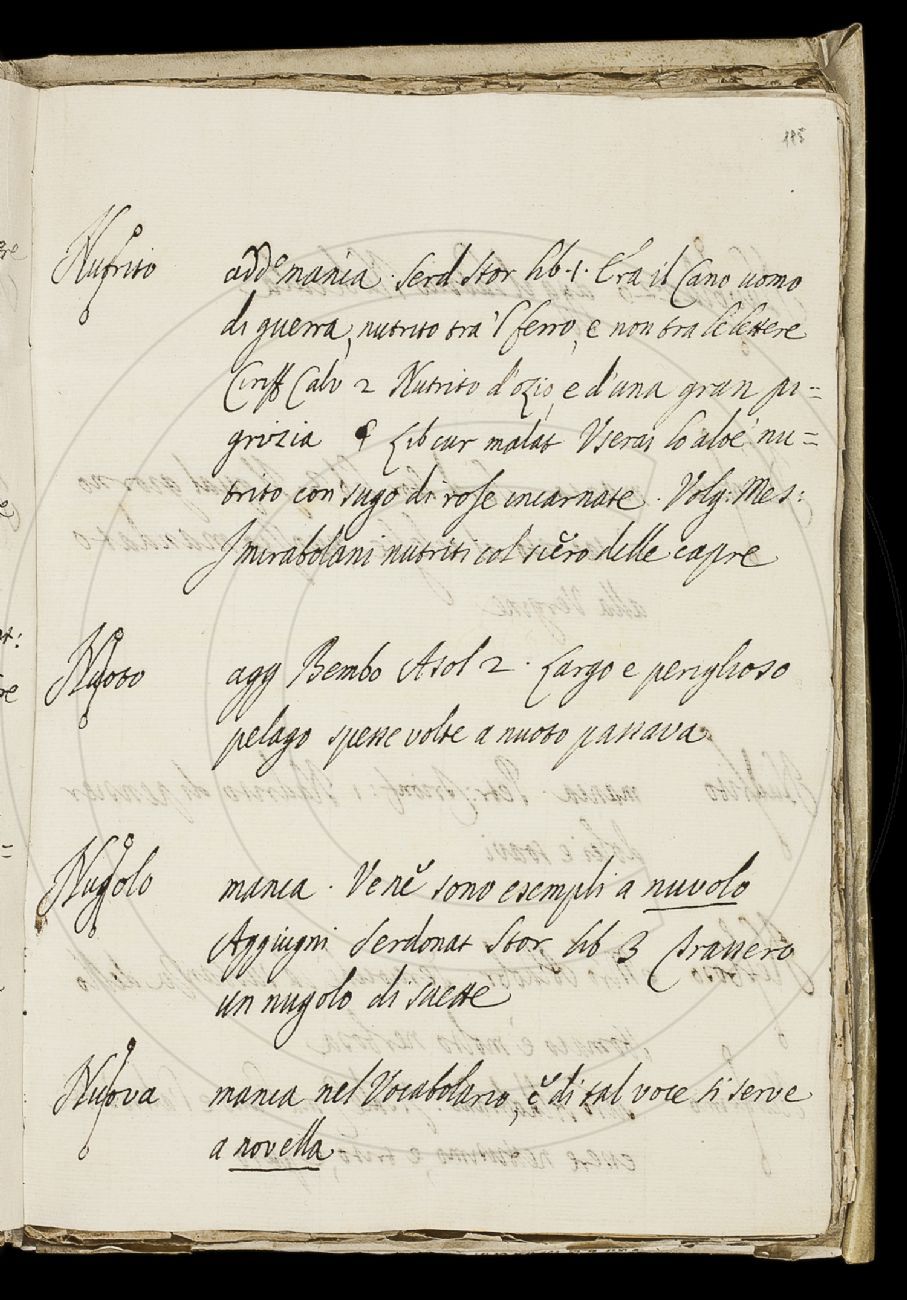 Nutrito add.o manca. Serd Stor lib. 1. Era il Cano uomo
di guerra, nutrito tra 'l ferro, e non tra le lettere
Ciriff Calv 2 Nutrito d'ozio, e d'una gran pi=
grizia Lib cur malat Userai lo aloè nu=
trito con sugo di rose incarnate. Volg: Mes:
I mirabolani nutriti col siero delle capre
Nuoto agg Bembo Asol 2. Largo e periglioso
pelago spesse volte a nuoto passava
Nugolo manca. Ven' sono esempli a nuvolo
Aggiugni Serdonat Stor lib 3 Trassero
un nugolo di saette
Nuova manca nel Vocabolario, e di tal voce si serve
a novella